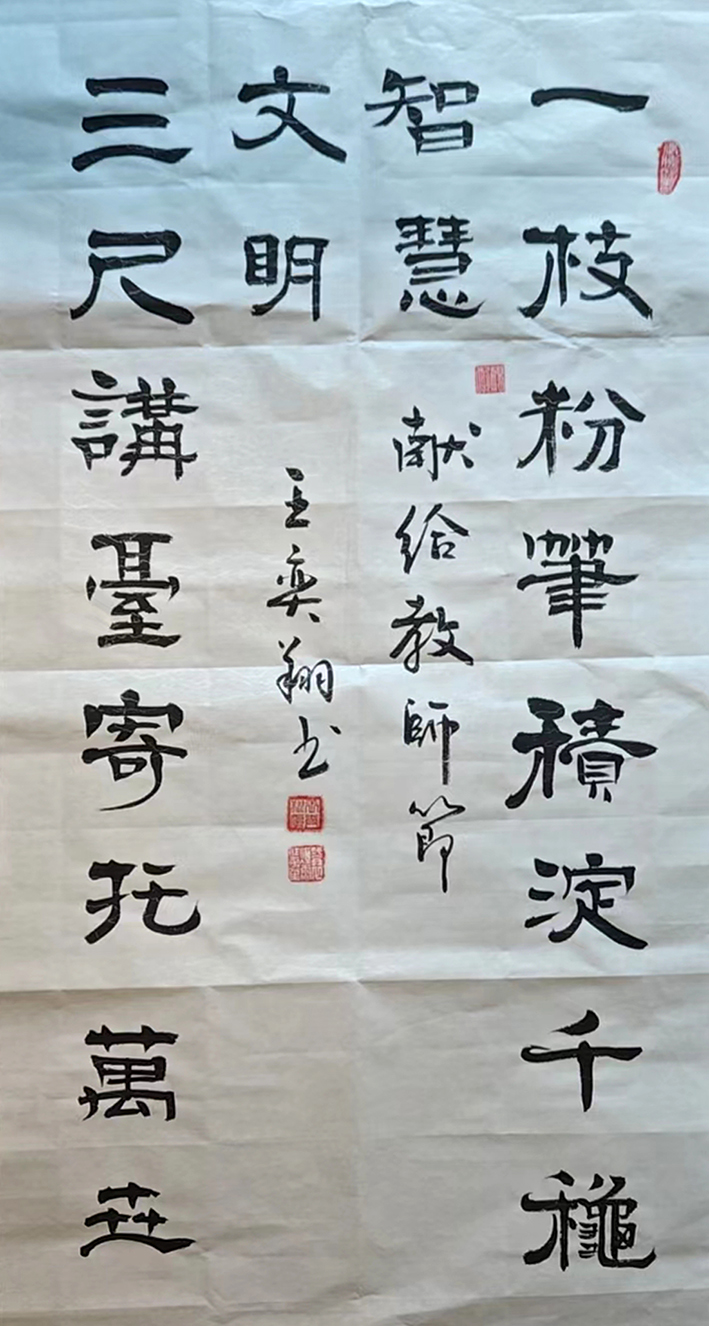 一枝粉筆積淀千龝
智慧
三尺講臺寄托萬世
文明
献給教師節
王奕翔书